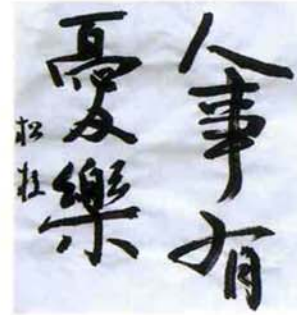 人事有
憂樂
松柱